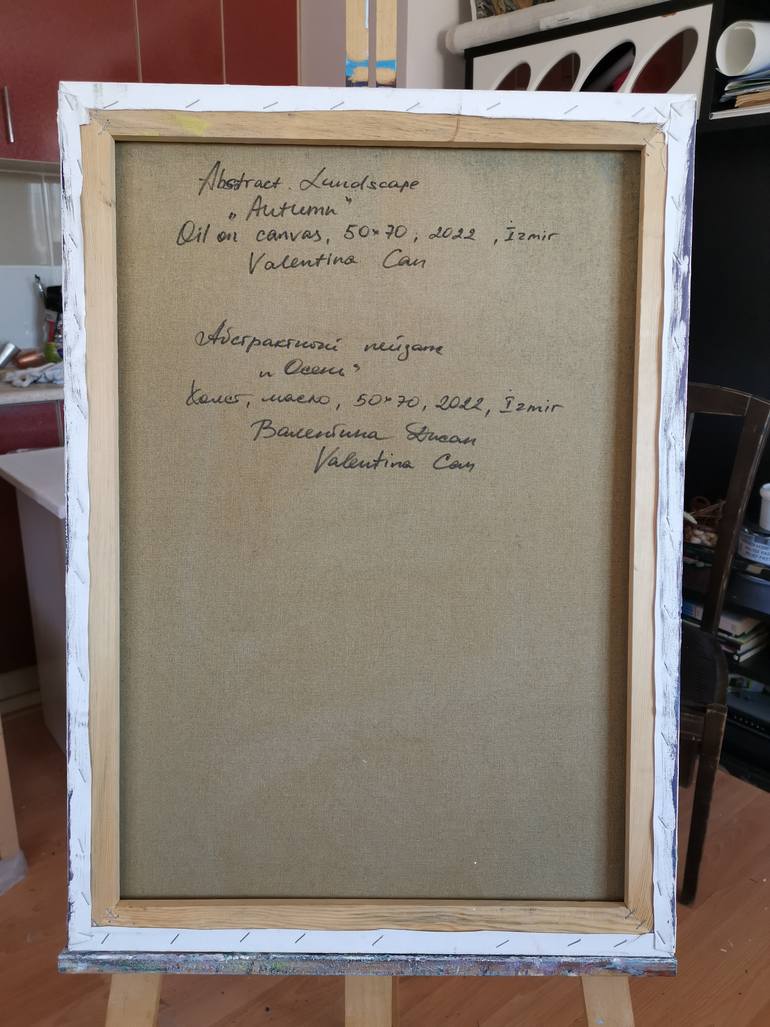 Abstract. Lundscape
„Autumn"
Oil on canvas, 50×70, 2022, İzmir
Valentina Can
Абстрактный пейзаж
„Осень"
Холст, масло, 50×70, 2022, İzmir
Валентина Джан
Valentina Can